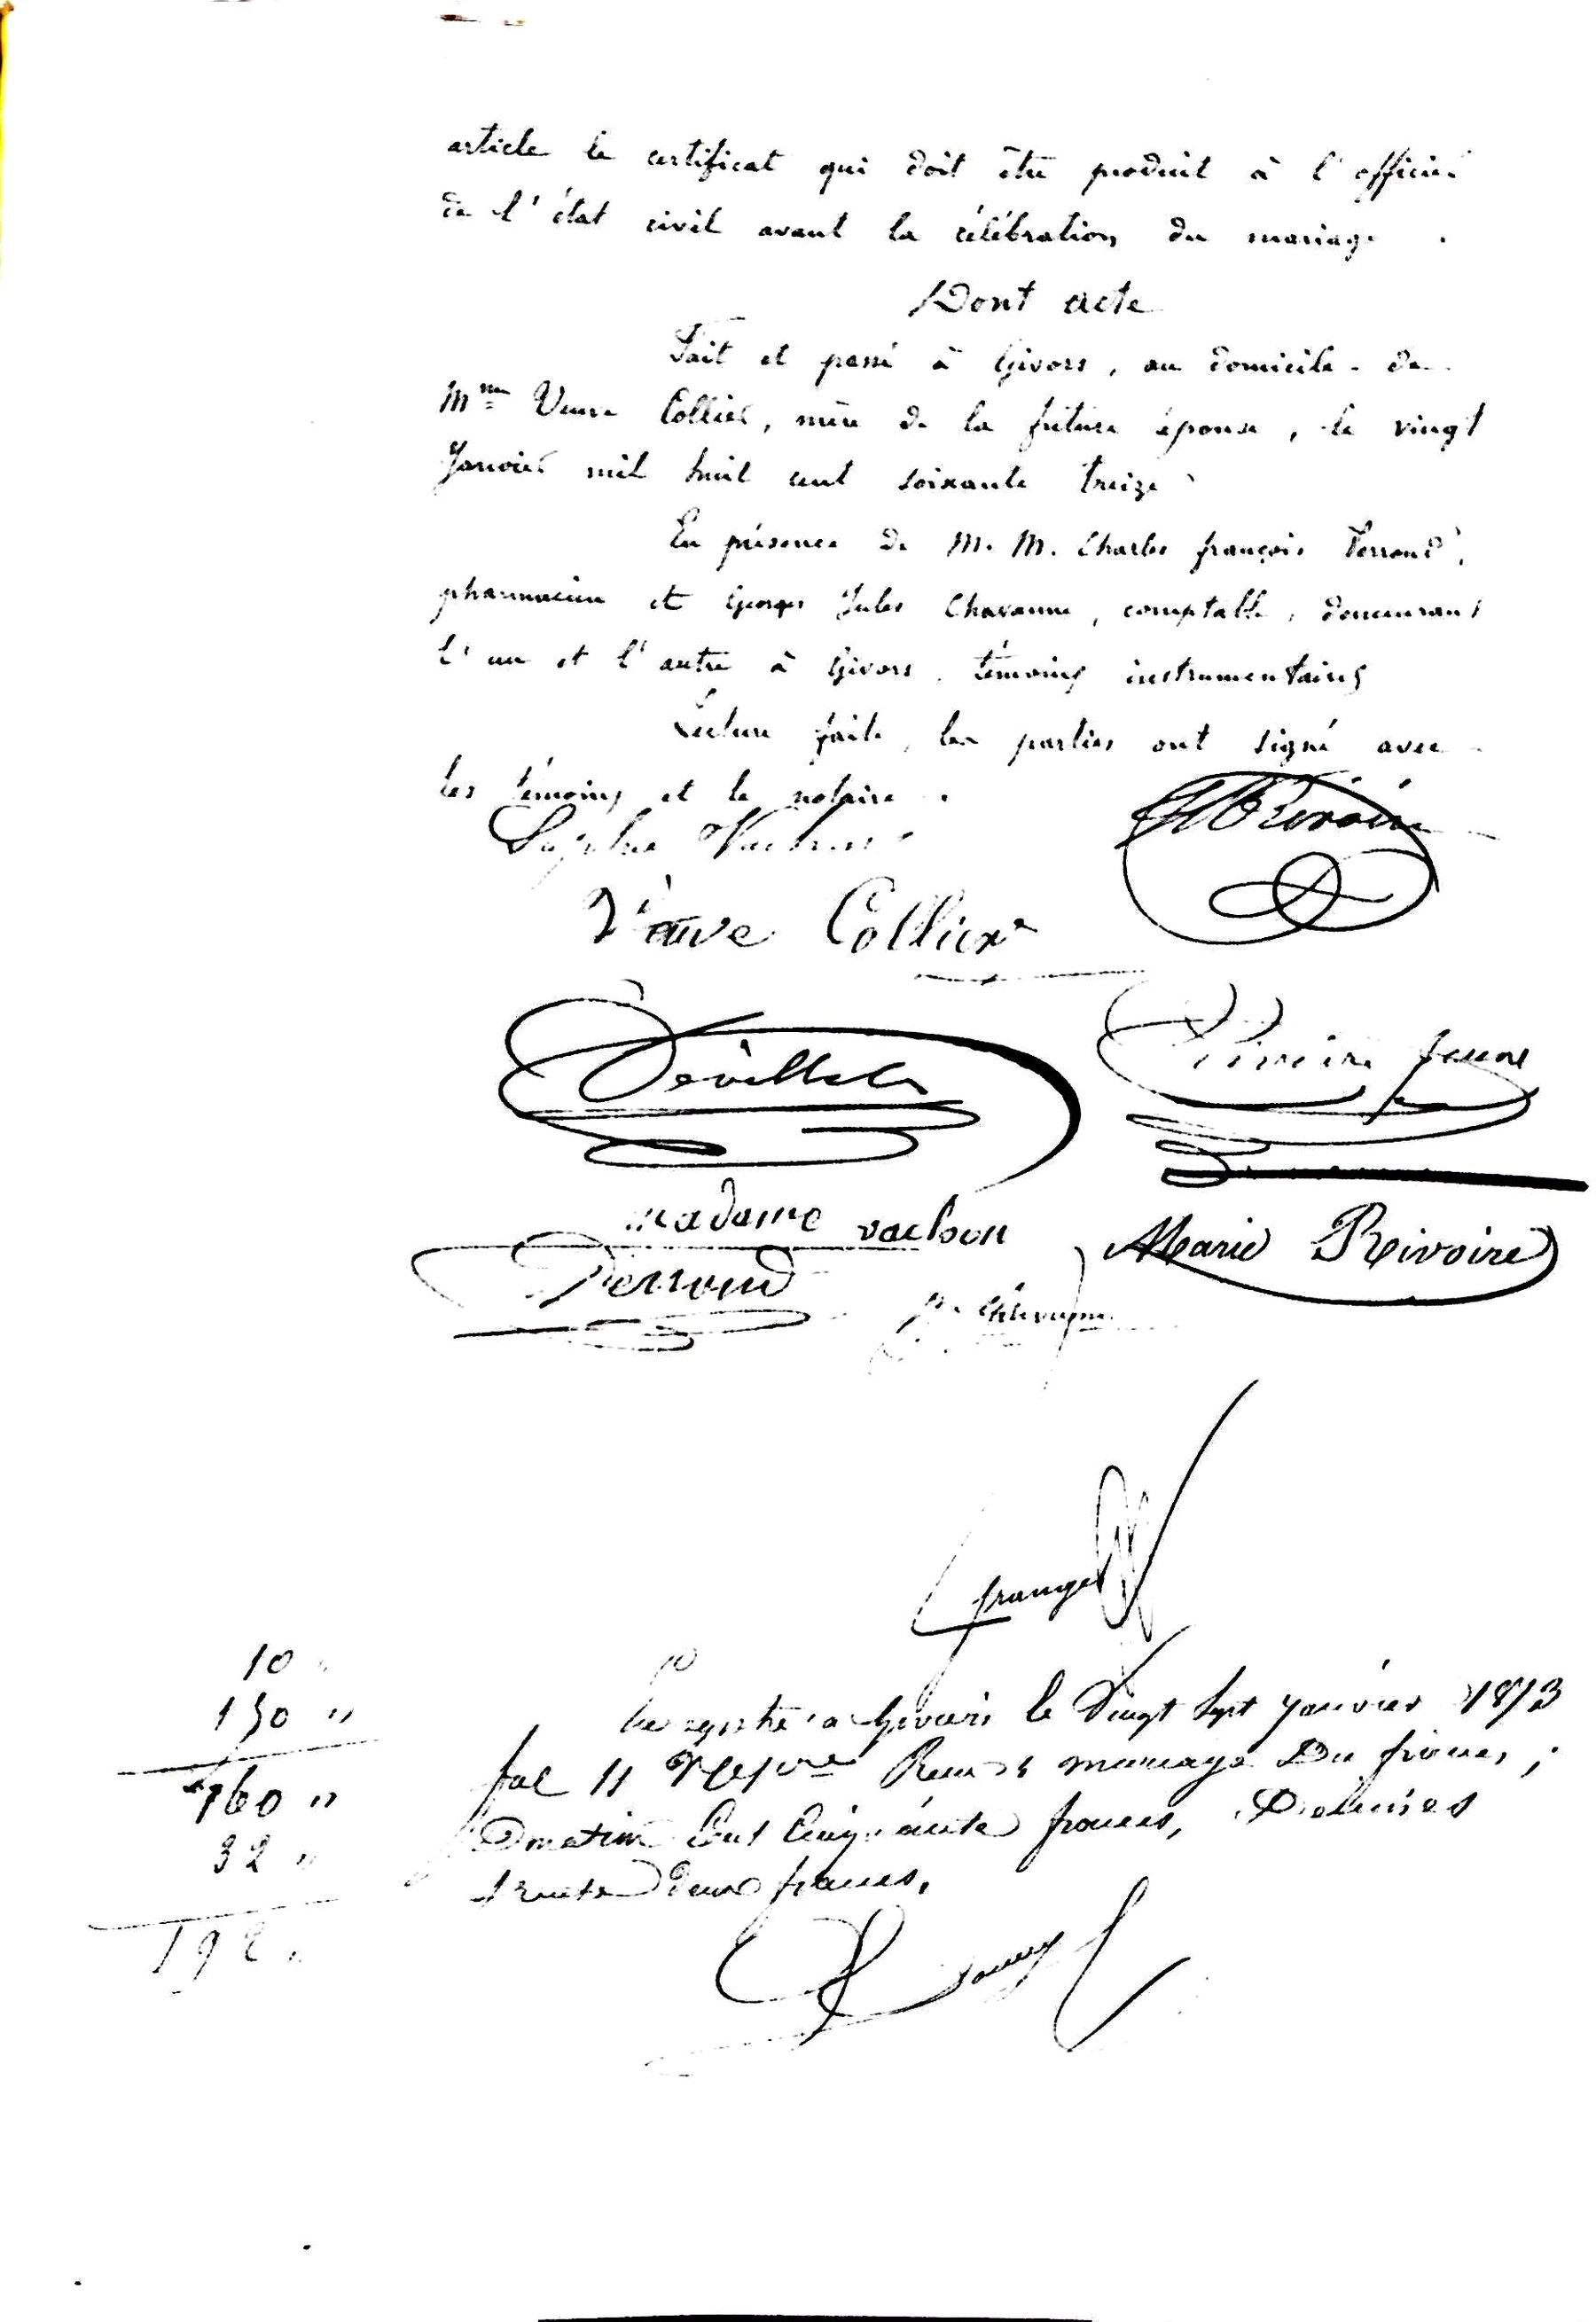 article le certificat qui doit être produit à l'officier
de l'état civil avant la célébration du mariage.
Dont acte
Fait et passé à Givors, au domicile de
Mme Veuve Collier, mère de la future épouse, le vingt
Janvier mil huit cent soixante treize
En présence de M. M. Charles françois Perroud,
pharmacien et Georges Jules Chavanne, comptable, demeurant
l'un et l'autre à Givors, témoins instrumentaires
Lecture faite, les parties ont signé avec
les témoins et le notaire.
Rivoire
Veuve Collier
Rivoire jeune
madame vachon
Marie Rivoire
Perroud
Chavanne
10 "
150 "
160 "
32 "
192 "
Enregistré à Givors le Vingt Sept Janvier 1873
fol 11 Reçu mariage Dix francs,
Donation Cent Cinquante francs, Décimes
trente Deux francs.